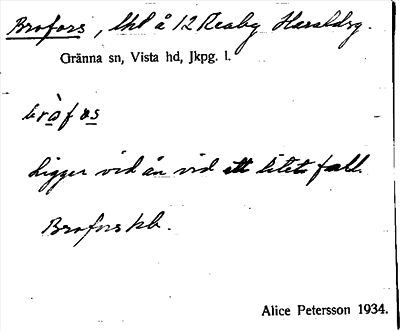 Brofors, lht å 12 Reaby Haraldsg.
Gränna sn, Vista hd, Jkpg. l.
bròfɷs
Ligger vid ån vid ett litet fall.
Brofors kb.
Alice Petersson 1934.